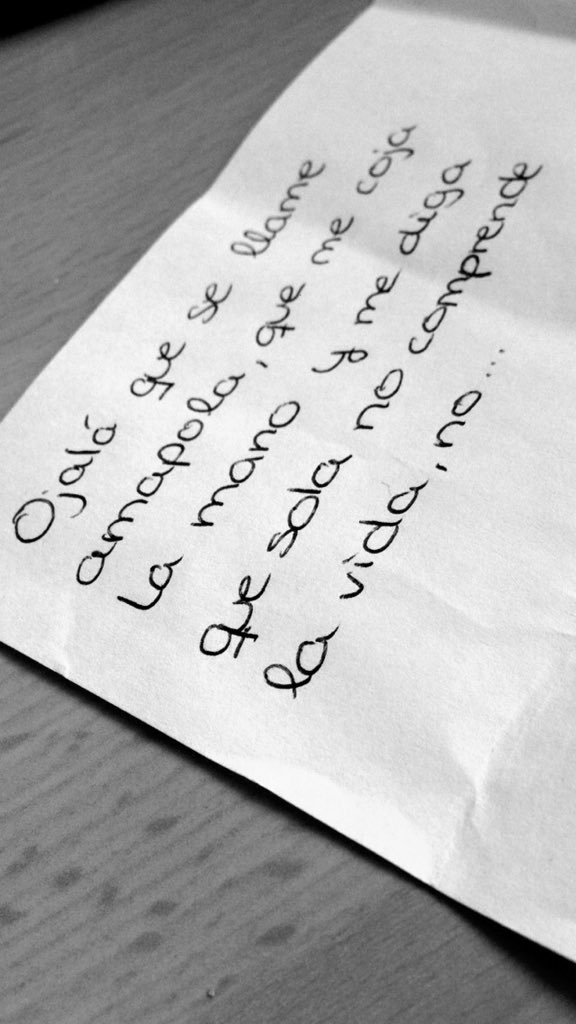 Ojalá que se llame
amapola, que me coja
La mano y me diga
que sola no comprende
la vida, no...